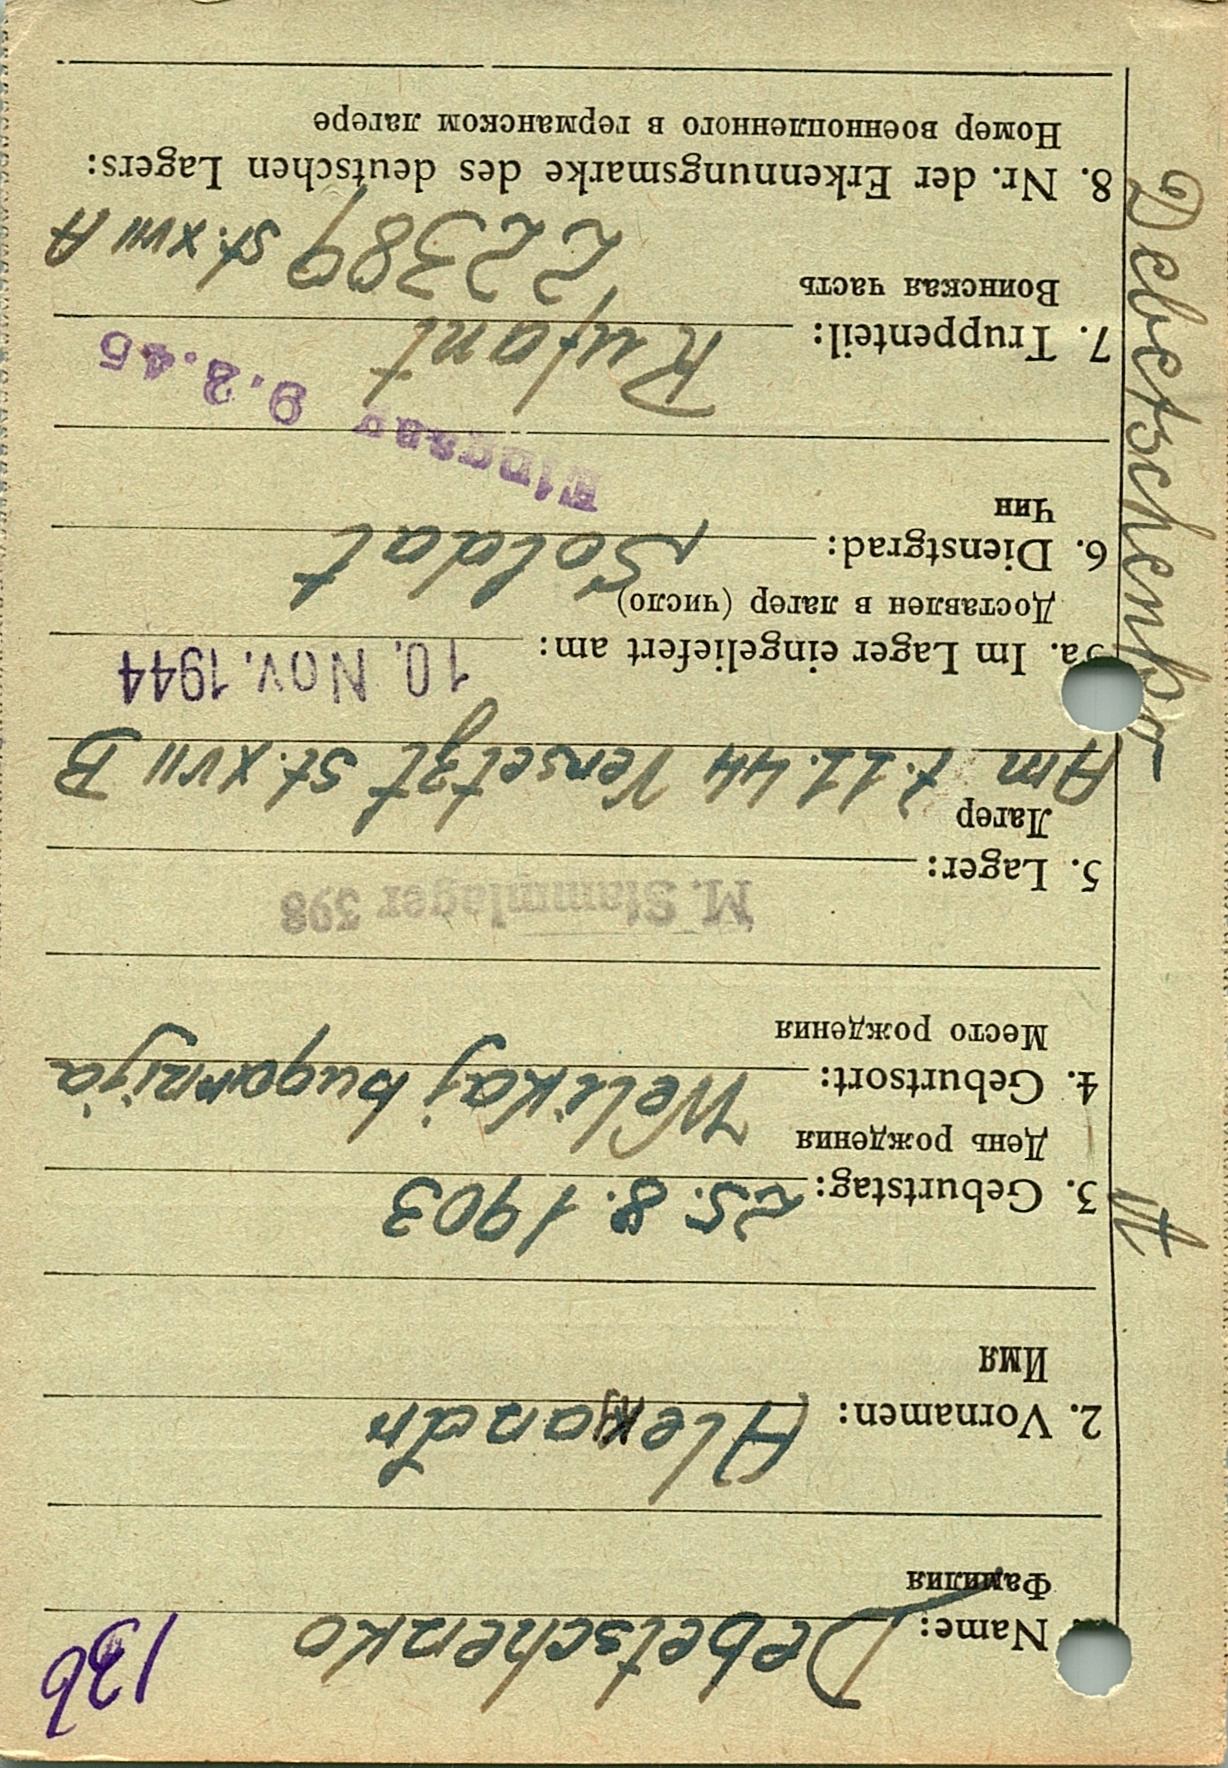 13b
Name: Debetschenko
Фамилия
2. Vornamen: Alexandr
Имя
3. Geburtstag: 25. 8. 1903
День рождения
4. Geburtsort: Welikaj bugarnija
Место рождения
M. Stammlager 398
5. Lager:
Лагер
Am 7.11.44 Versetzt St. XVII B
5a. Im Lager eingeliefert am: 10. Nov. 1944
Доставлен в лагер (число)
6. Dienstgrad: Soldat
Чин
Eingang 9.3.45
7. Truppenteil:
Воинская часть
22389 St. XVII A
8. Nr. der Erkennungsmarke des deutschen Lagers:
Номер военнопленного в германском лагере
Debetschenko